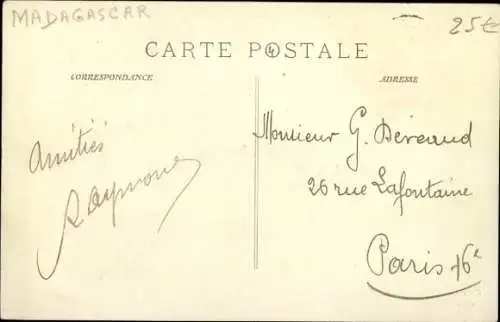 MADAGASCAR
25€
CARTE POSTALE
4
CORRESPONDANCE
ADRESSE
Amitiés
Raymond
Monsieur G. Déreaud
26 rue Lafontaine
Paris 16e